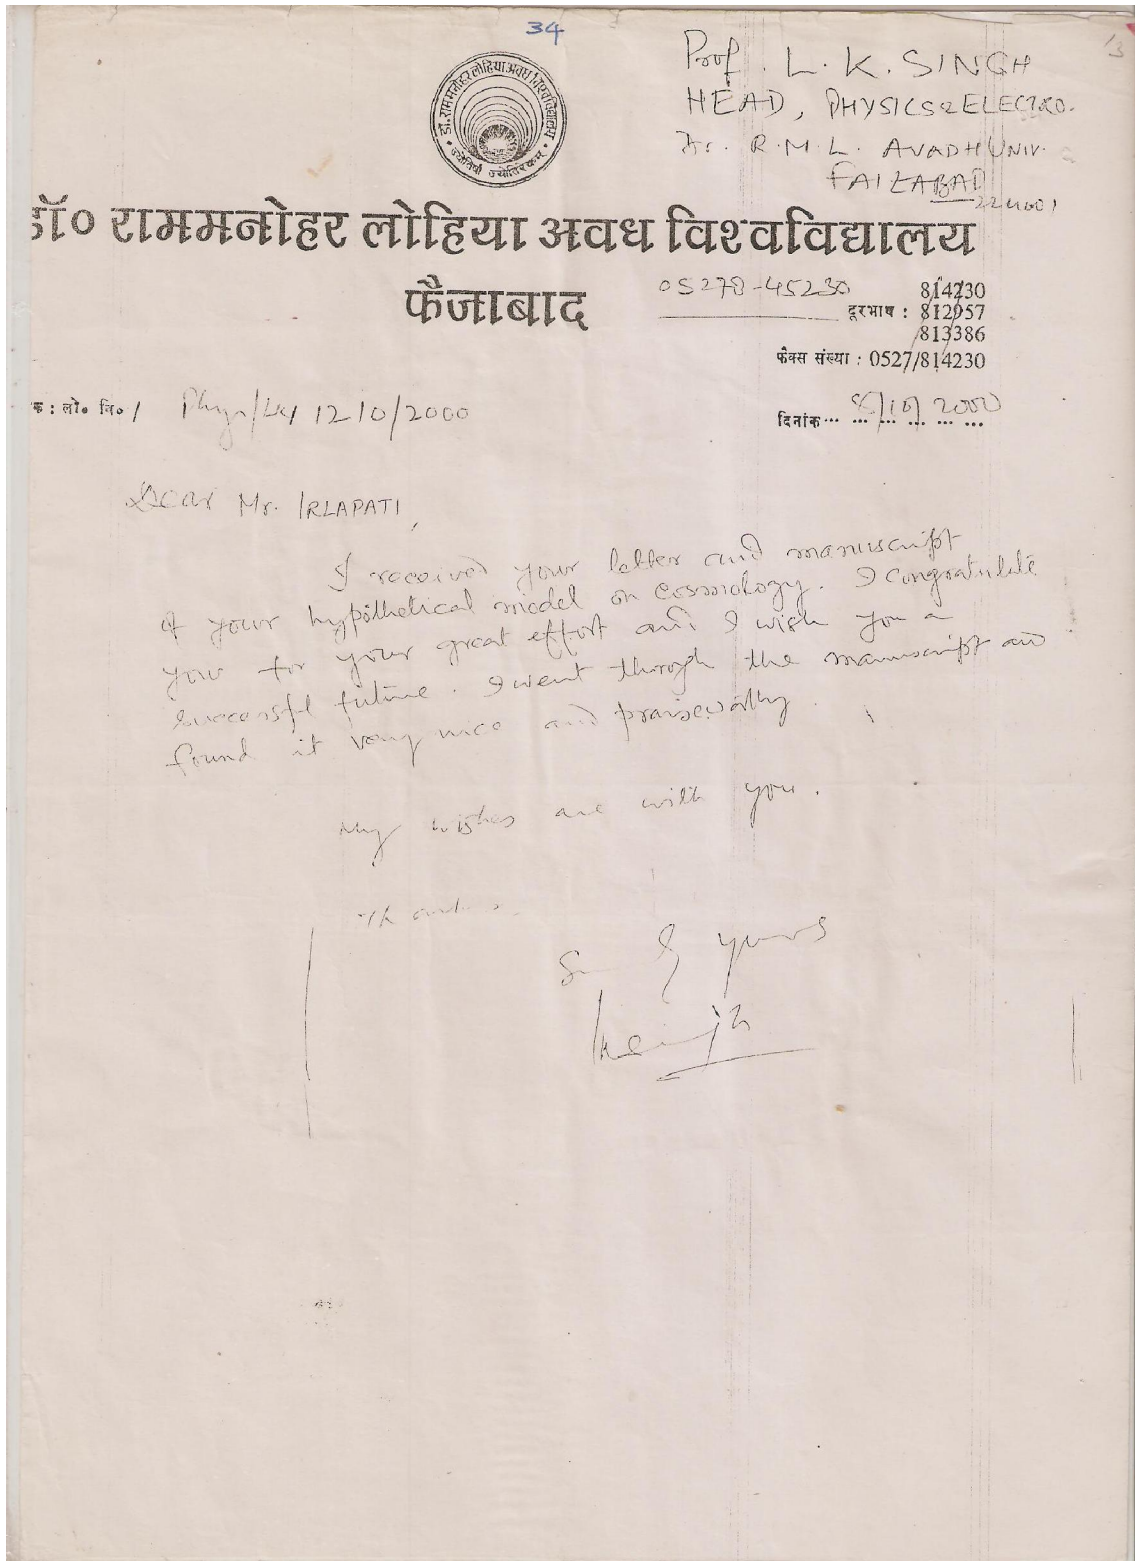 34
13
Prof. L. K. SINGH
HEAD, PHYSICS & ELECTRO.
Dr. R. M. L. AVADH UNIV.
FAIZABAD
224001
डा. राम मनोहर लोहिया अवध विश्वविद्यालय
डॉ० राममनोहर लोहिया अवध विश्वविद्यालय
फैजाबाद
05278-45230
814230
दूरभाष : 812957
813386
फैक्स संख्या : 0527/814230
क : लो० वि० / 1210/2000
दिनांक 2000
Dear Mr. IRLAPATI,
I received your letter and manuscript
of your hypothetical model on cosmology. I congratulate
you for your great effort and I wish you a
successful future. I went through the manuscript and
found it very nice and praiseworthy.
My wishes are with you.
yours